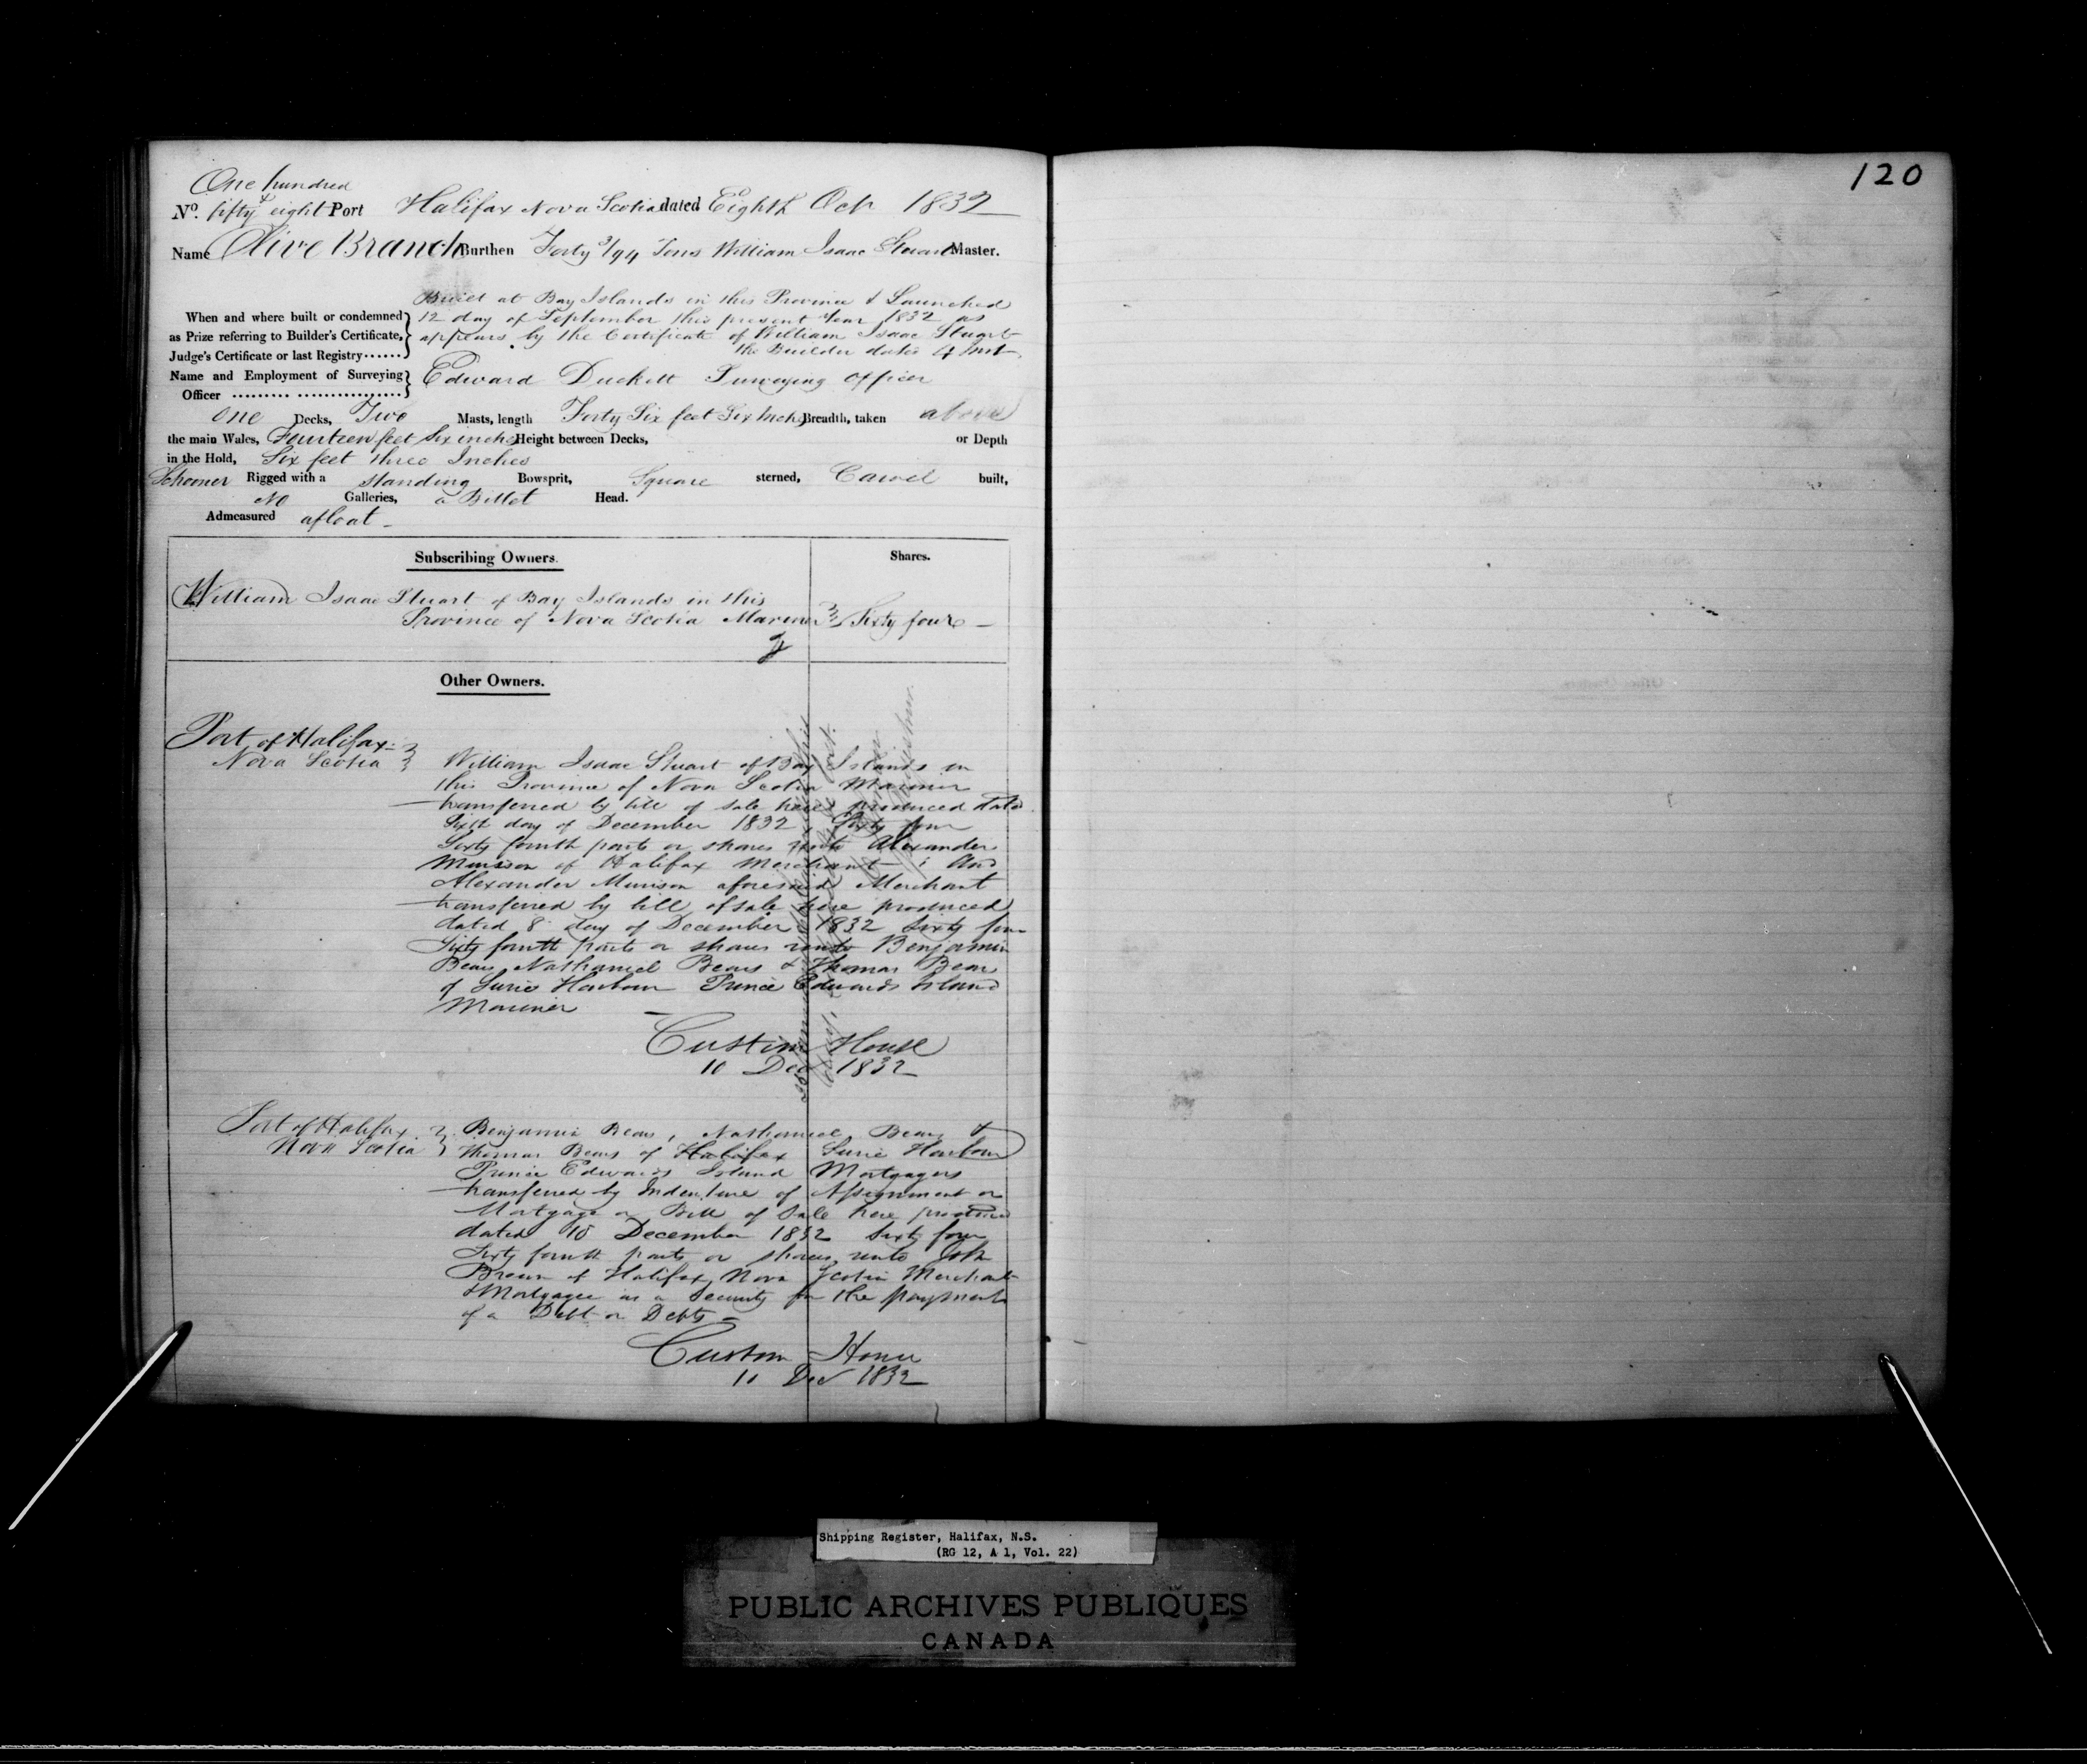 One hundred
No. fifty & eight Port Halifax Nova Scotia dated Eighth Octr 1832
Name Olive Branch Burthen Forty 3/94 Tons William Isaac Stuart Master.
Built at Bay Islands in this Province & Launched
When and where built or condemned 12 day of September this present Year 1832 as
as Prize referring to Builder's Certificate, appears by the Certificate of William Isaac Stuart
Judge's Certificate or last Registry...... the Builder dated 4 Inst.
Name and Employment of Surveying Edward Duckett Surveying Officer
Officer ......... ................
One Decks, Two Masts, length Forty Six feet Six Inchs Breadth, taken above
the main Wales, Fourteen feet Six inchs Height between Decks, or Depth
in the Hold, Six feet three Inches
Schooner Rigged with a standing Bowsprit, Square sterned, Carvel built,
No Galleries, a Billet Head.
Admeasured afloat -
Subscribing Owners. Shares.
William Isaac Stuart of Bay Islands in this
Province of Nova Scotia Mariner Sixty four -
Other Owners.
Port of Halifax
Nova Scotia William Isaac Stuart of Bay Islands in
this Province of Nova Scotia Mariner
transferred by bill of sale here produced dated
Sixth day of December 1832 Sixty four
Sixty fourth parts or shares unto Alexander
of Halifax Merchant ; And
Alexander aforesaid Merchant
transferred by bill of sale here produced
dated 8 day of December 1832 Sixty four
Sixty fourth parts or shares unto Benjamin
Bears Nathaniel Bears & Thomas Bears
of Surie Harbour Prince Edwards Island
Mariner
Custom House
10 Dec 1832
Port of Halifax
Nova Scotia Benjamin Bears, Nathaniel Bears &
Thomas Bears of Halifax Surie Harbour
Prince Edwards Island Mortgagers
transferred by Indenture of Assignment or
Mortgage or Bill of Sale here produced
dated 10 December 1832 Sixty four
Sixty fourth parts or shares unto John
of Halifax Nova Scotia Merchant
& Mortgagee as a Security for the payment
of a Debt or Debts -
Custom House
10 Dec 1832
120
Shipping Register, Halifax, N.S.
(RG 12, A 1, Vol. 22)
PUBLIC ARCHIVES PUBLIQUES
CANADA